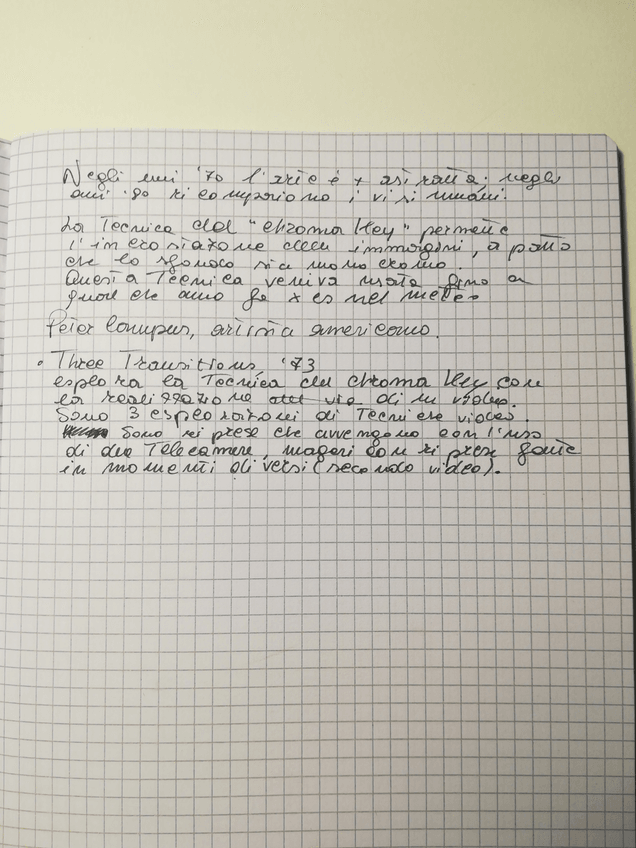 Negli anni '70 l'arte è + astratta; negli
anni '80 ri compariono i visi umani.
La Tecnica del "chroma Key" permette
l'incrostazione delle immagini, a patto
che lo sfondo sia monocromo.
Questa Tecnica veniva usata fino a
qualche anno fa x es nel meteo
Peter Campus, artista americano.
• Three Transitions, '73
esplora la Tecnica del chroma Key con
la realizzazione di un video.
Sono 3 esplorazioni di Tecniche video.
Sono riprese che avvengono con l'uso
di due Telecamere, magari con riprese fatte
in momenti diversi (secondo video).